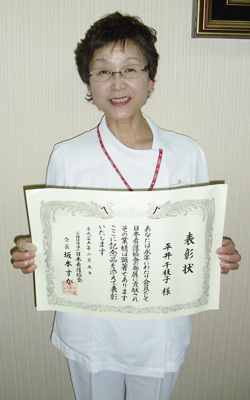 表彰状
平井千枝子 様
あなたは永年にわたり会員として
日本看護協会の発展に貢献され
その業績は顕著であります
ここに記念品を添えて表彰
いたします
平成二十五年六月五日
公益社団法人日本看護協会
会長 坂本すが